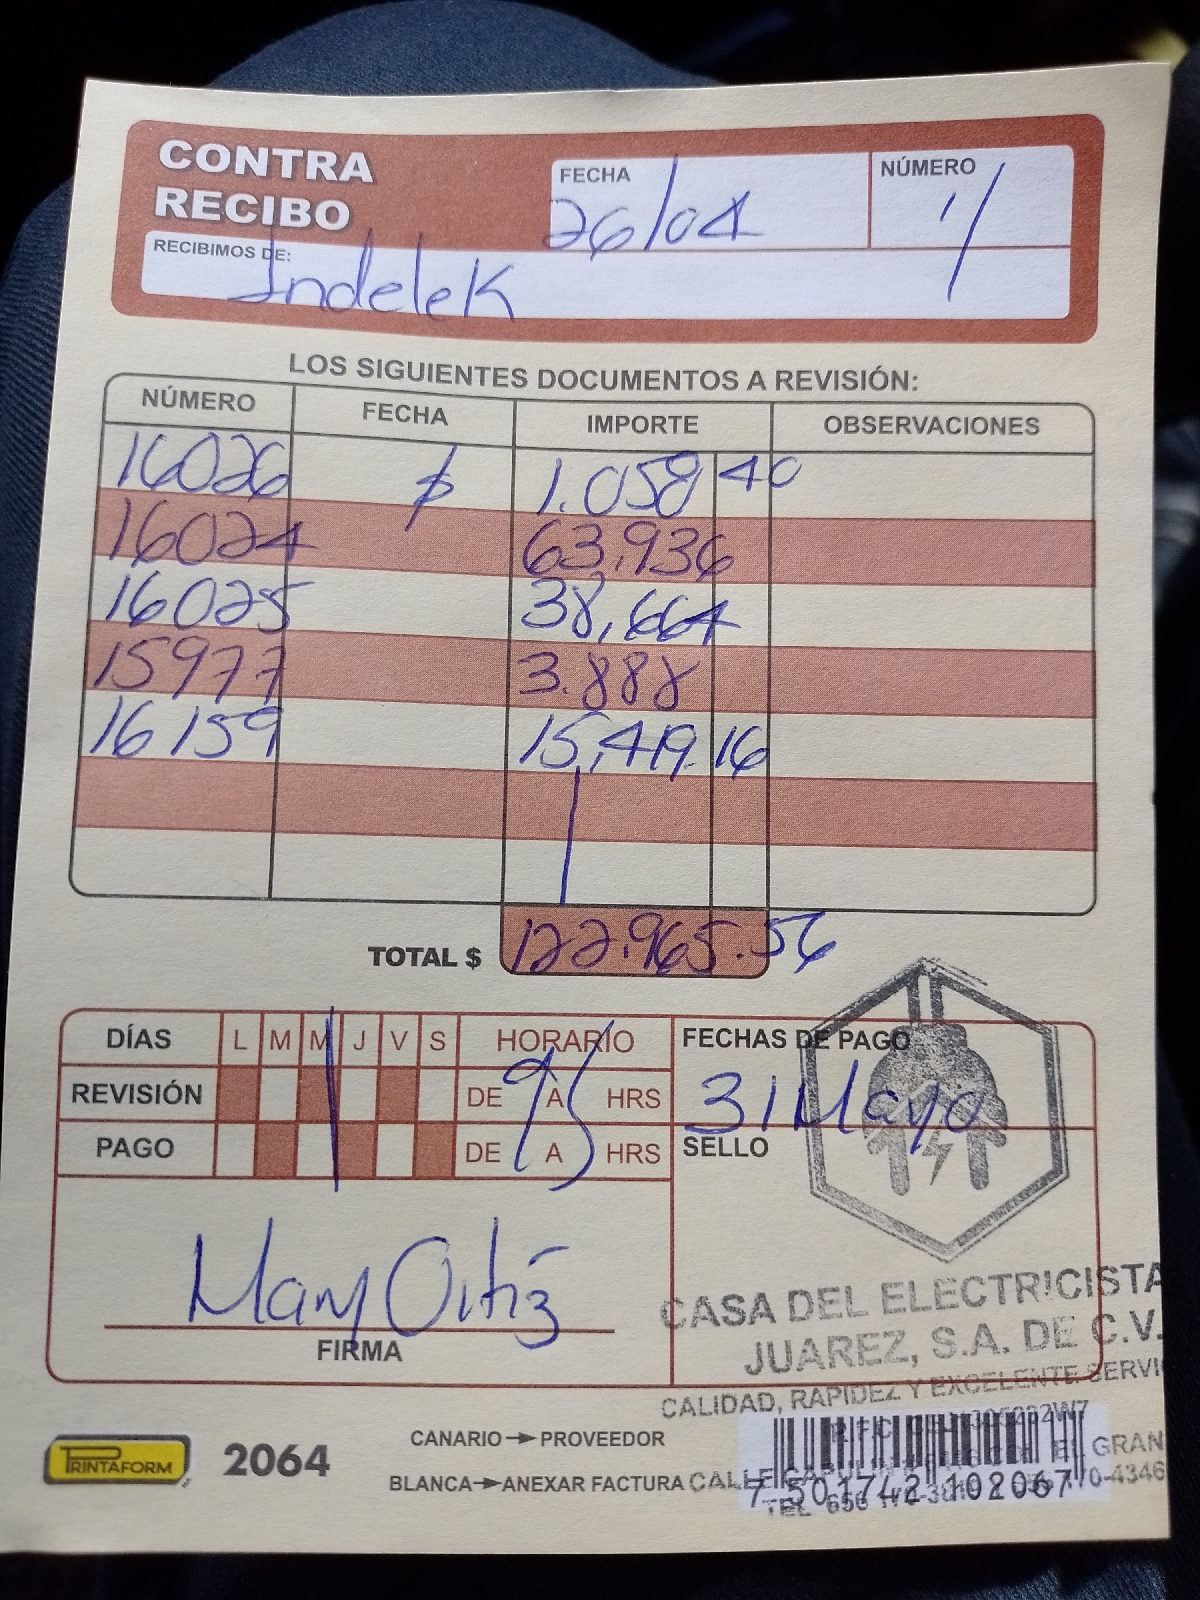 CONTRA
RECIBO
FECHA
26/04
NÚMERO
RECIBIMOS DE:
Indelek
LOS SIGUIENTES DOCUMENTOS A REVISIÓN:
NÚMERO FECHA IMPORTE OBSERVACIONES
16026 $ 1.058 40
16024 63,936
16025 38,664
15977 3.888
16159 15,419.16
TOTAL $ 122.965.56
DÍAS L M M J V S HORARIO
REVISIÓN DE 9 A 5 HRS
PAGO DE A HRS
FECHAS DE PAGO
31 Mayo
SELLO
Mary Ortiz
FIRMA
CASA DEL ELECTRICISTA
JUAREZ, S.A. DE C.V.
CALIDAD, RAPIDEZ Y EXCELENTE SERVI
PRINTAFORM 2064
CANARIO→PROVEEDOR
BLANCA→ANEXAR FACTURA
CALLE
GRAN
TEL 656
7 501742 102067